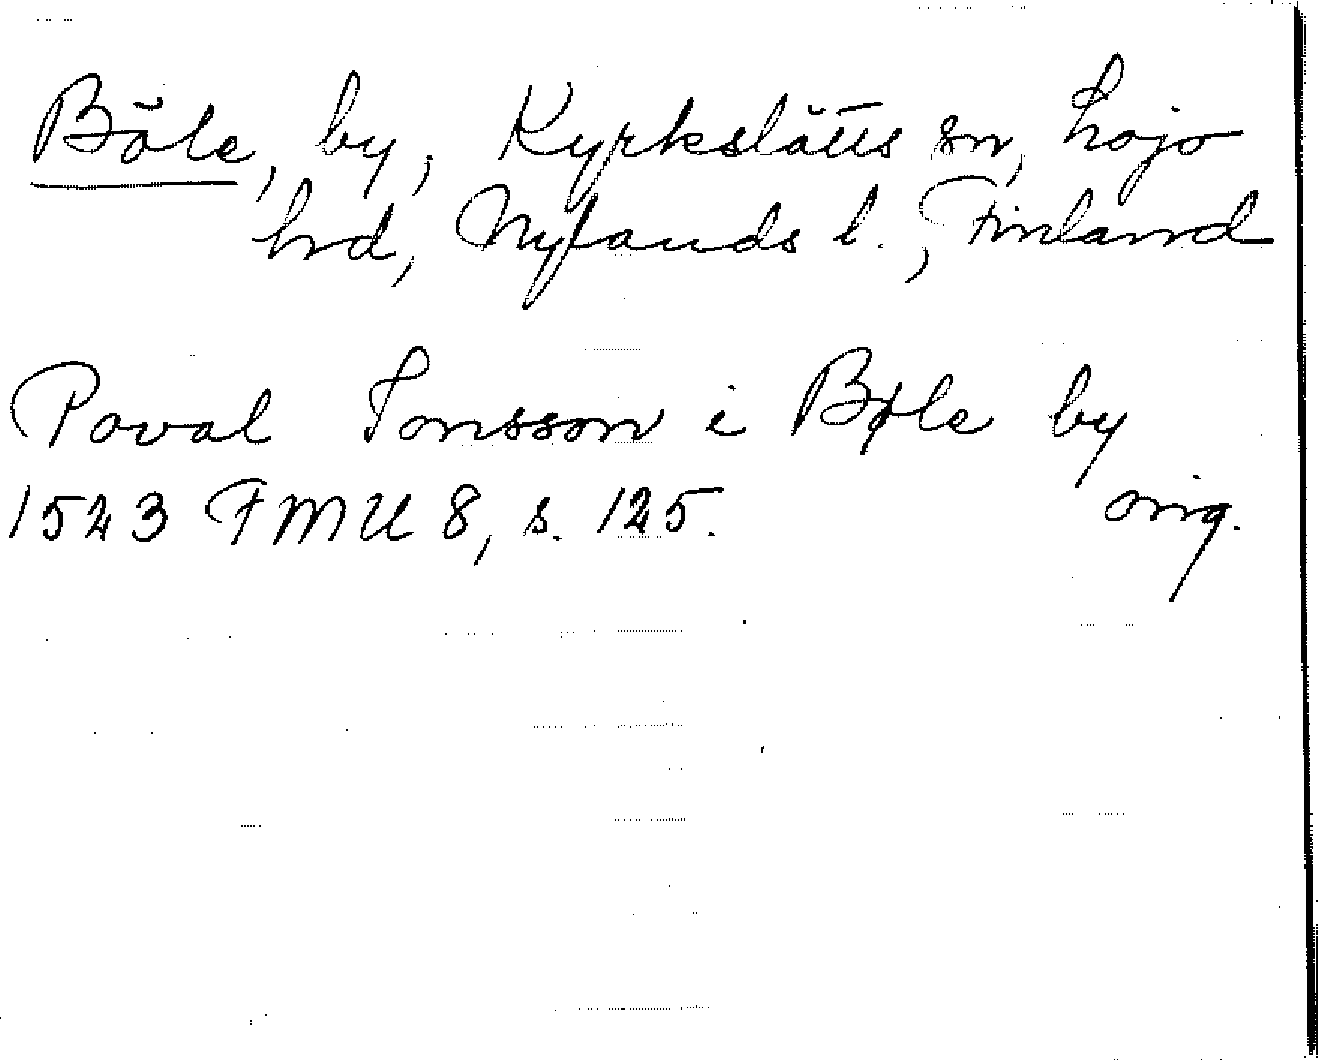 Böle, by, Kyrkslätts sn, Lojo
hd, Nylands l., Finland
Poval Jonsson i Bøle by
1543 FMU 8, s. 125. orig.